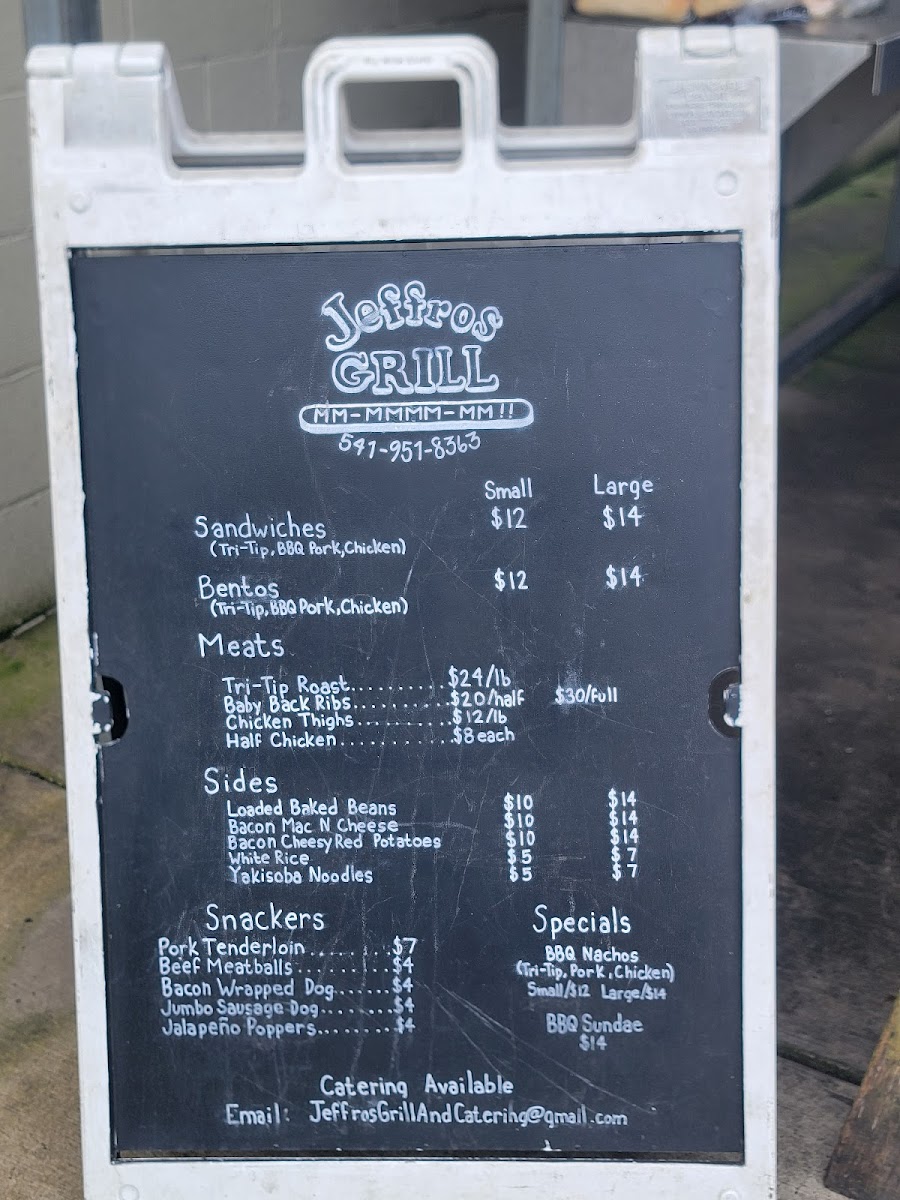 Jeffros
GRILL
MM-MMMM-MM!!
541-951-8363
Small Large
Sandwiches $12 $14
(Tri-Tip, BBQ Pork, Chicken)
Bentos $12 $14
(Tri-Tip, BBQ Pork, Chicken)
Meats
Tri-Tip Roast.......... $24/lb
Baby Back Ribs.......... $20/half $30/full
Chicken Thighs.......... $12/lb
Half Chicken.......... $8 each
Sides
Loaded Baked Beans $10 $14
Bacon Mac N Cheese $10 $14
Bacon Cheesy Red Potatoes $10 $14
White Rice $5 $7
Yakisoba Noodles $5 $7
Snackers
Pork Tenderloin.......... $7
Beef Meatballs.......... $4
Bacon Wrapped Dog....... $4
Jumbo Sausage Dog........ $4
Jalapeño Poppers........ $4
Specials
BBQ Nachos
(Tri-Tip, Pork, Chicken)
Small/$12 Large/$14
BBQ Sundae
$14
Catering Available
Email: JeffrosGrillAndCatering@gmail.com